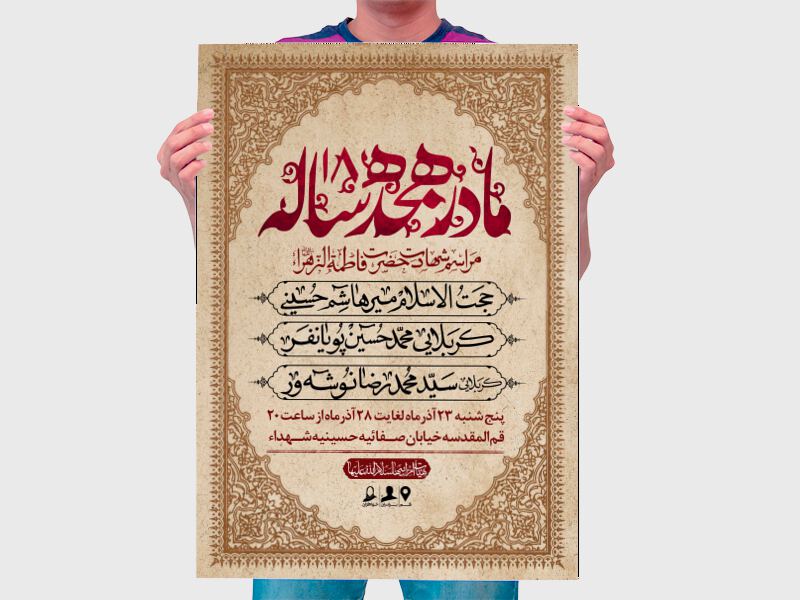 مادر هجده ساله ۱۸
مراسم شهادت حضرت فاطمة الزهراء
حجت الاسلام میرهاشم حسینی
کربلایی محمدحسین پویانفر
کربلایی سید محمدرضا نوشه ور
پنج شنبه ۲۳ آذر ماه لغایت ۲۸ آذر ماه از ساعت ۲۰
قم المقدسه خیابان صفائیه حسینیه شهداء